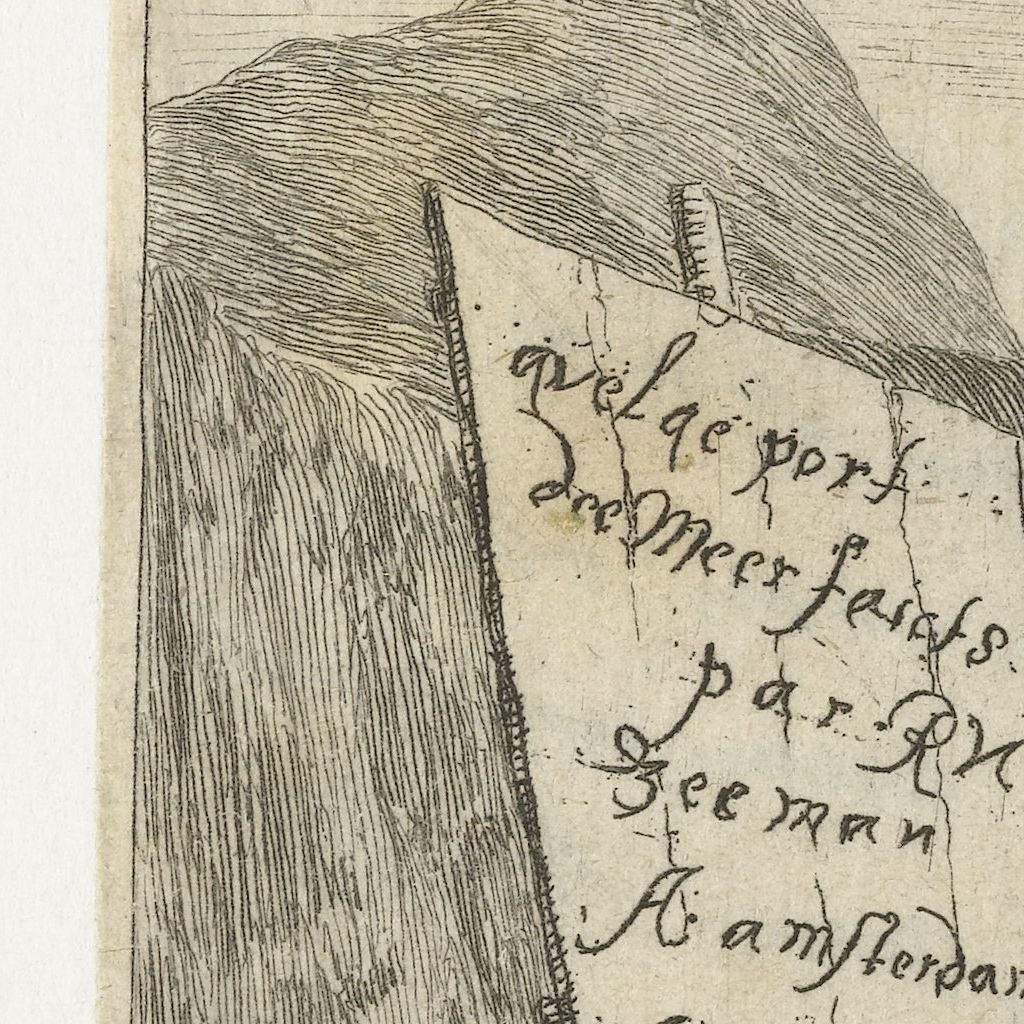 quelqe porſ
dee Meer faicts
par RN
Zeeman
A amſterdam